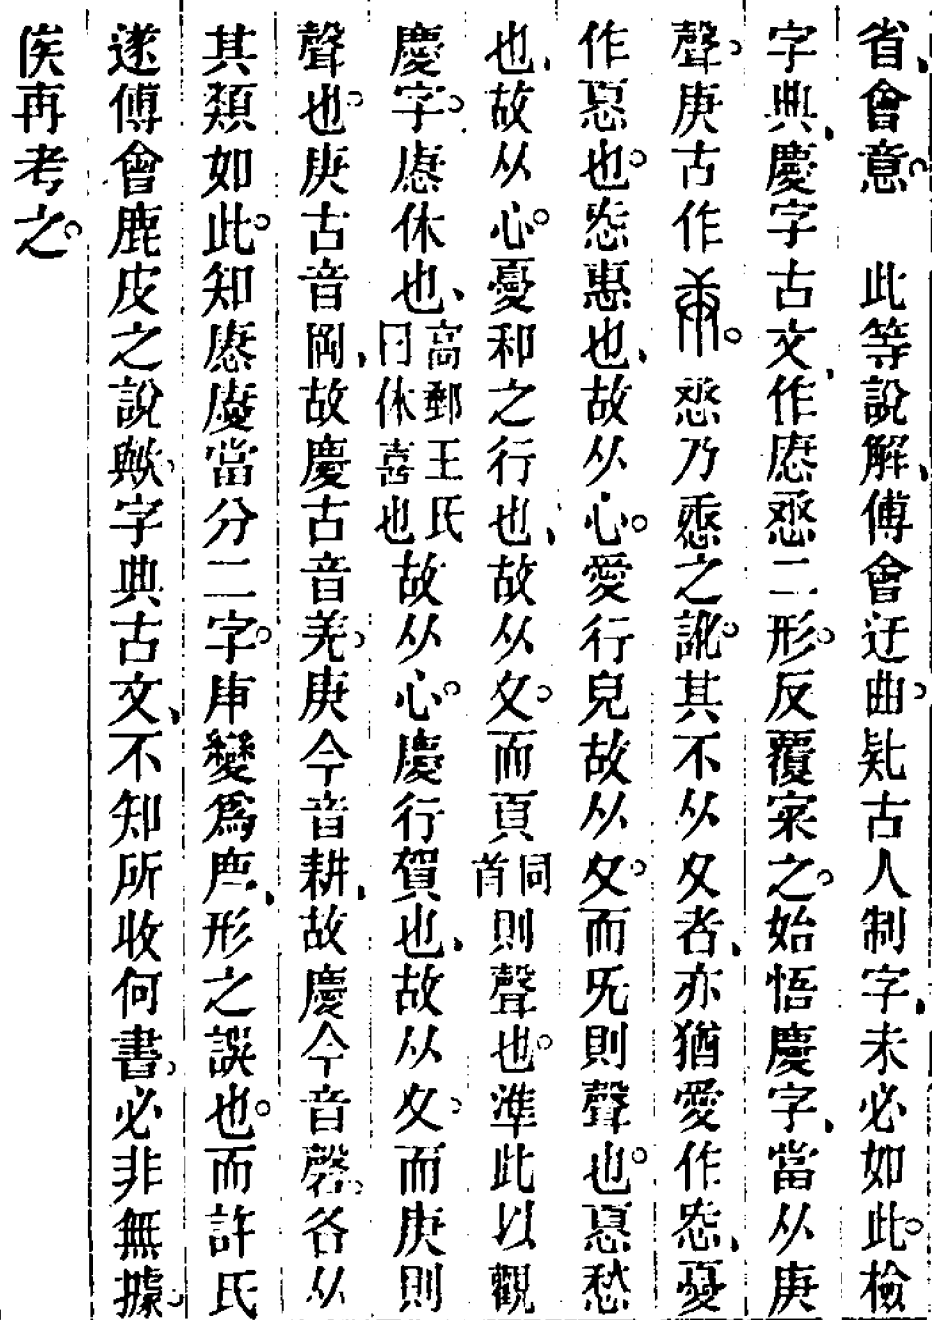 省、會意。　此等說解、傅會迂曲。𠤕古人制字、未必如此。檢
字典、慶字古文、作二形。反覆宷之。始悟慶字、當从庚
聲。庚古作。乃之訛。其不从夊者、亦猶愛作㤅、憂
作𢝊也。㤅惠也、故从心。愛行皃故从夊。而旡則聲也。𢝊愁
也、故从心。憂和之行也、故从夊。而頁同首則聲也。準此以觀
慶字。休也、高郵王氏曰休喜也故从心。慶行賀也、故从夊。而庚則
聲也。庚古音岡、故慶古音羌。庚今音耕、故慶今音磬。各从
其類如此。知當分二字。變爲、形之誤也。而許氏
遂傅會鹿皮之說歟。字典古文、不知所收何書。必非無據。
俟再考之。